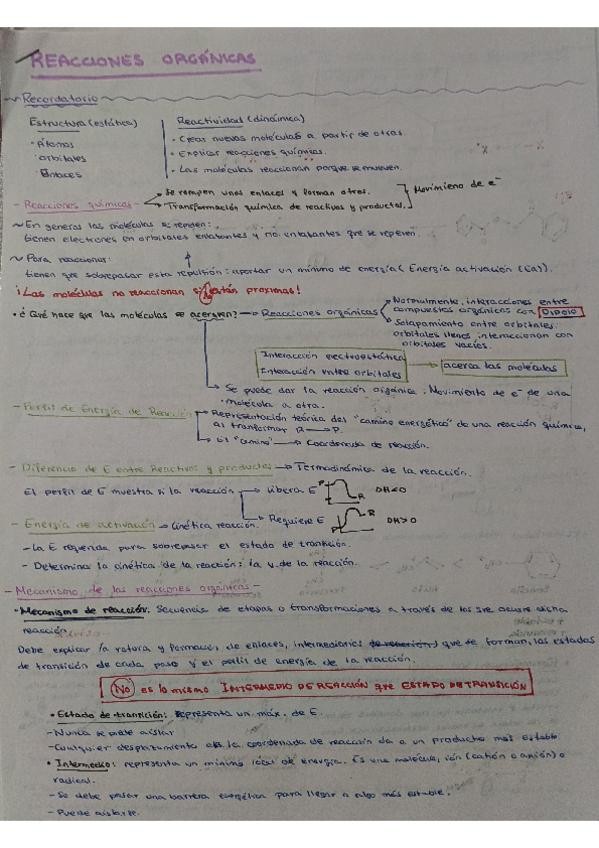 REACCIONES ORGÁNICAS
~ Recordatorio
Estructura (estática)
· Átomos
· orbitales
· Enlaces
Reactividad (dinámica)
· Crear nuevas moléculas a partir de otras.
· Explicar reacciones químicas.
· Las moléculas reaccionan porque se mueven.
- Reacciones químicas
Se rompen unos enlaces y forman otros.
Transformación química de reactivos y productos.
Movimieno de e⁻
~ En general las moléculas se repelen:
tienen electrones en orbitales enlazantes y no enlazantes que se repelen.
~ Para reaccionar:
tienen que sobrepasar esta repulsión: aportar un mínimo de energía (Energía activación (Ea)).
¡Las moléculas no reaccionan si No están próximas!
· ¿Qué hace que las moléculas se acerquen? → Reacciones orgánicas
Normalmente, interacciones entre
compuestos orgánicos con DIPOLO
Solapamiento entre orbitales:
orbitales llenos interaccionan con
orbitales vacíos.
Interacción electroestática
Interacción entre orbitales
acerca las moléculas
Se puede dar la reacción orgánica: Movimiento de e⁻ de una
molécula a otra.
- Perfil de Energía de Reacción
Representación teórica del "camino energético" de una reacción química,
al transformar R → P.
El "camino" → Coordenada de reacción.
- Diferencia de E entre Reactivos y productos → Termodinámica de la reacción.
El perfil de E muestra si la reacción
Libera E
P
R
DH<0
Requiere E
P
R
DH>0
- Energía de activación → Cinética reacción.
- La E requerida para sobrepasar el estado de transición.
- Determina la cinética de la reacción: la v de la reacción.
- Mecanismo de las reacciones orgánicas -
· Mecanismo de reacción: Secuencia de etapas o transformaciones a través de las que ocurre dicha
reacción.
Debe explicar la rotura y formación de enlaces, intermediarios que se forman, los estados
de transición de cada paso y el perfil de energía de la reacción.
No es lo mismo INTERMEDIO DE REACCIÓN que ESTADO DE TRANSICIÓN
· Estado de transición: Representa un máx. de E.
- Nunca se puede aislar
- Cualquier desplazamiento en la coordenada de reacción da a un producto más estable.
· Intermedio: representa un mínimo local de energía. Es una molécula, ión (catión o anión) o
radical.
- Se debe pasar una barrera energética para llegar a algo más estable.
- Puede aislarse.